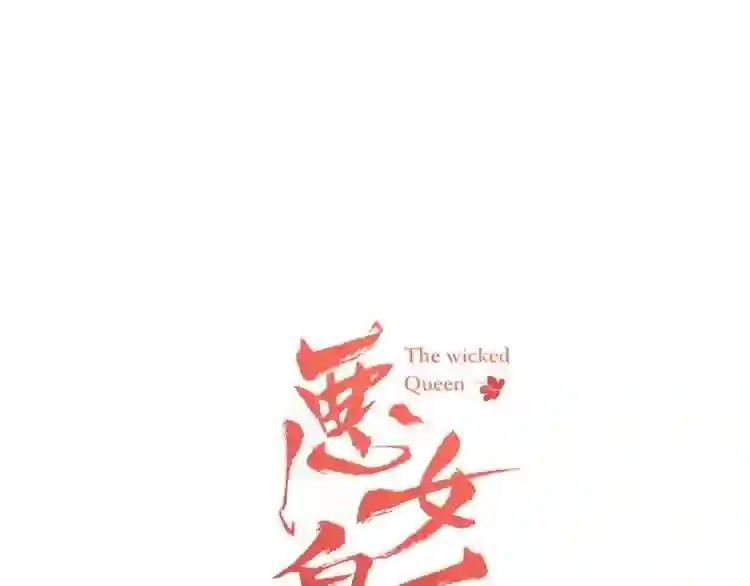 悪女
The wicked
Queen